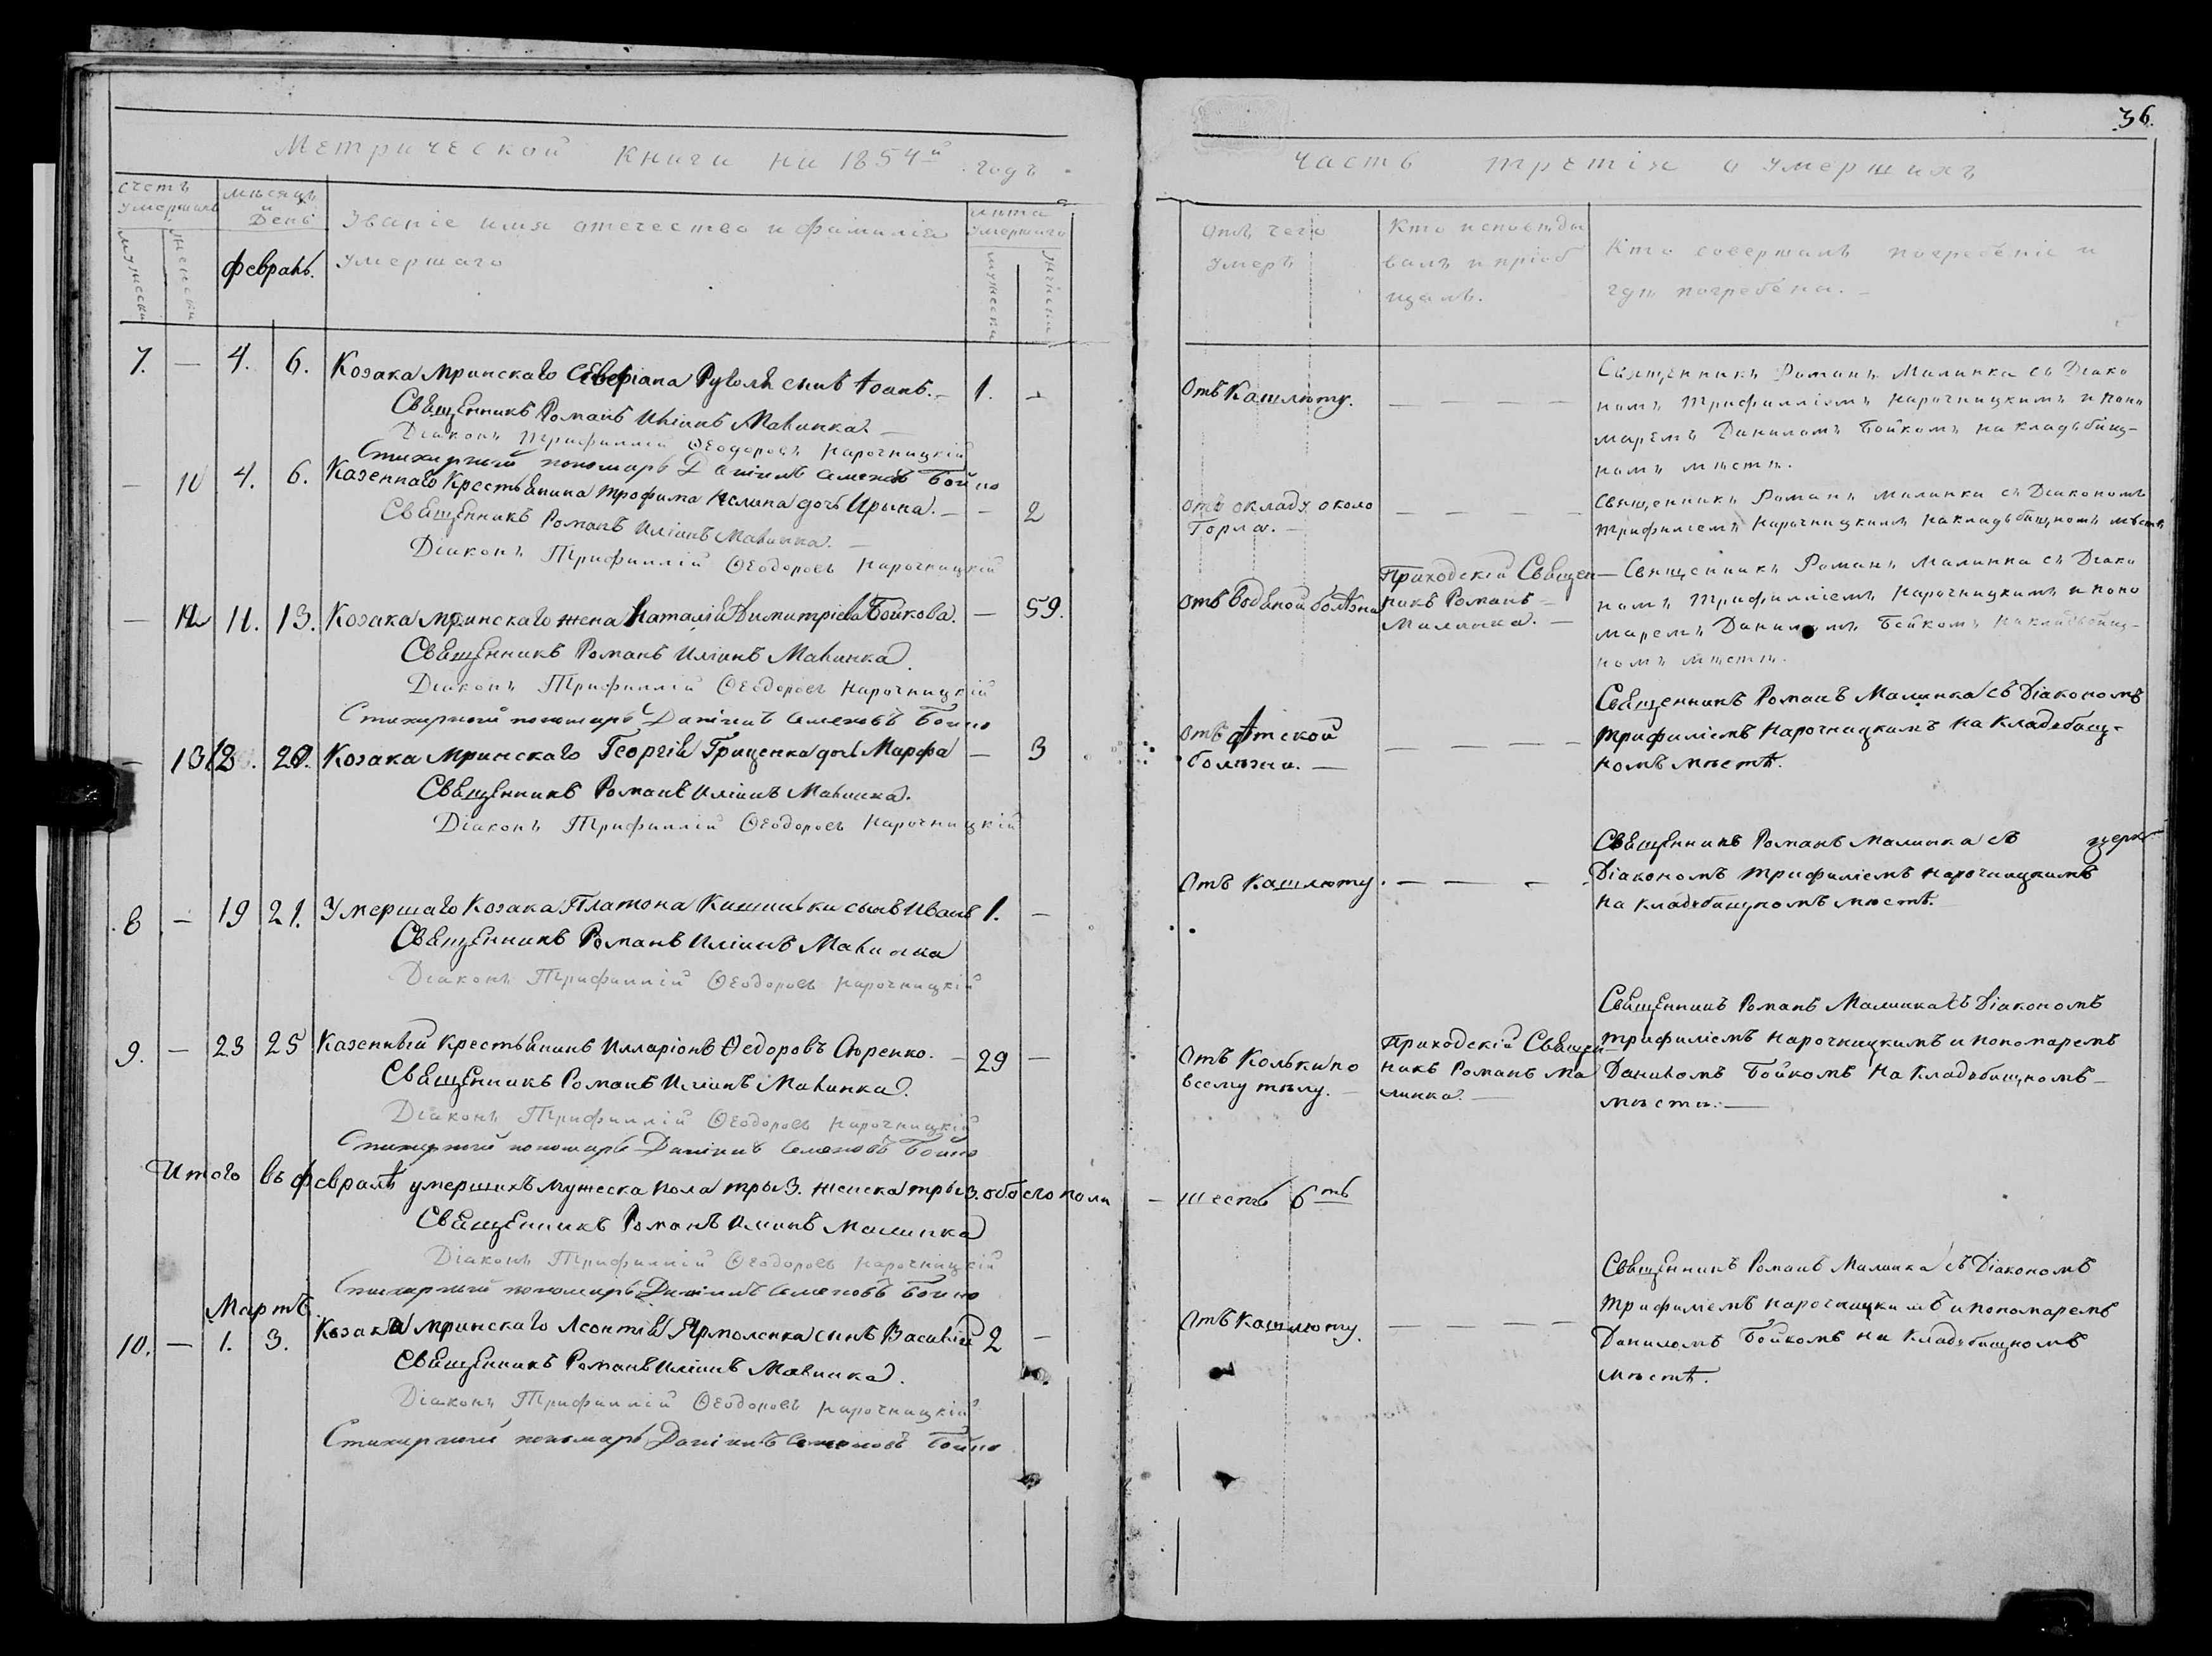 36.
Метрической Книги на 1854й годъ
Часть третія о умершихъ
счетъ умершихъ
мужеска
женска
мѣсяцъ и День
Февраль.
Званіе имя отечество и фамилія
умершаго
лѣта умершаго
мужеска
женска
Отъ чего
умеръ
Кто исповѣды
валъ и пріоб
щалъ.
Кто совершалъ погребеніе и
гдѣ погребены.
7. — 4. 6. Козака Мринскаго сынъ Іоанъ. — 1. —
Священникъ Романъ Иліинъ Малинка. —
Діаконъ Трифиллій Ѳеодоровъ Нарочницкій
Стихирный пономарь Даніилъ Семеновъ Бойко
Отъ Кашлюту. — — — —
Священникъ Романъ Малинка съ Діако
номъ Трифилліемъ Нарочницкимъ и поно
маремъ Даниломъ Бойкомъ на кладьбищ-
номъ мѣстѣ.
— 10 4. 6. Казеннаго Крестьянина Трофима дочь Ирына. — — 2
Священникъ Романъ Иліинъ Малинка. —
Діаконъ Трифиллій Ѳеодоровъ Нарочницкій
отъ окладу около
Горла. — — — — —
Священникъ Романъ Малинка съ Діакономъ
Трифиліемъ Нарочницкимъ на кладьбищномъ мѣстѣ
— 12 11. 13. Козака Мринскаго жена Наталія Димитріева Бойкова. — 59.
Священникъ Романъ Иліинъ Малинка.
Діаконъ Трифиллій Ѳеодоровъ Нарочницкій
Стихирный пономарь Даніилъ Семеновъ Бойко
Отъ водяной болѣзни
Приходскій Священ
никъ Романъ —
Малинка. —
— Священникъ Романъ Малинка съ Діако
номъ Трифилліемъ Нарочницкимъ и поно
маремъ Даниломъ Бойкомъ на кладьбищ-
номъ мѣстѣ.
— 13 20. Козака Мринскаго Георгія Гриценка дочь Марфа — 3
Священникъ Романъ Иліинъ Малинка.
Діаконъ Трифиллій Ѳеодоровъ Нарочницкій
Отъ дѣтской
болѣзни. — — — — —
Священникъ Романъ Малинка съ Діакономъ
Трифиліемъ Нарочницкимъ на Кладобищ-
номъ мѣстѣ.
8 — 19 21. Умершаго Козака Платона сынъ Иванъ 1. —
Священникъ Романъ Иліинъ Малинка
Діаконъ Трифиллій Ѳеодоровъ Нарочницкій
Отъ Кашлюту. — — — —
Священникъ Романъ Малинка съ
Діакономъ Трифиліемъ Нарочницкимъ
на кладобищномъ мѣстѣ.
9. — 23 25 Казенный Крестьянинъ Илларіонъ Ѳедоровъ — 29 —
Священникъ Романъ Иліинъ Малинка.
Діаконъ Трифиллій Ѳеодоровъ Нарочницкій
Стихирный пономарь Даніилъ Семеновъ Бойко
Отъ Колькипо
всему тѣлу. —
Приходскій Священ
никъ Романъ Ма
линка. —
Священникъ Романъ Малинка съ Діакономъ
Трифиліемъ Нарочницкимъ и пономаремъ
Даниломъ Бойкомъ на Кладобищномъ —
мѣстѣ. —
Итого въ февралѣ умершихъ мужеска пола тры 3. женска тры 3. обоего пола — шесть 6ть
Священникъ Романъ Иліинъ Малинка
Діаконъ Трифиллій Ѳеодоровъ Нарочницкій
Стихирный пономарь Даніилъ Семеновъ Бойко
Мартъ.
10. — 1. 3. Козака Мринскаго Леонтія Ярмоленка сынъ Василій 2 —
Священникъ Романъ Иліинъ Малинка.
Діаконъ Трифиллій Ѳеодоровъ Нарочницкій
Стихирный пономарь Даніилъ Семеновъ Бойко
Отъ Кашлюту. — — — —
Священникъ Романъ Малинка съ Діакономъ
Трифиліемъ Нарочницкимъ и пономаремъ
Даниломъ Бойкомъ на Кладобищномъ
мѣстѣ.